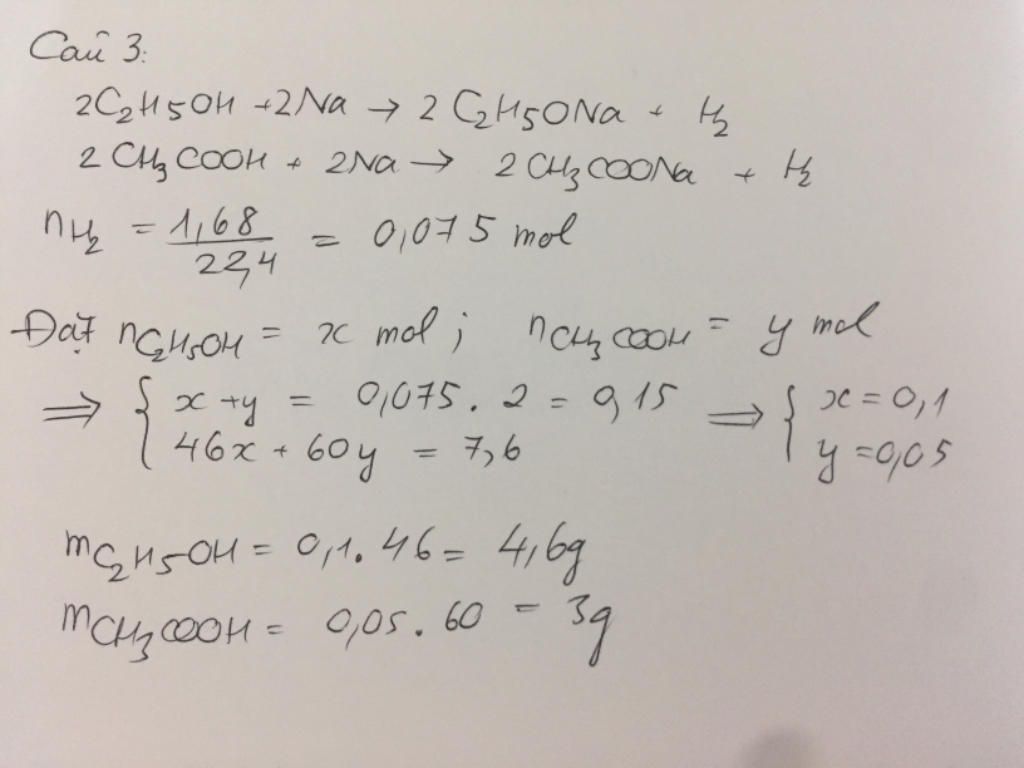 Câu 3:
2C₂H₅OH + 2Na → 2 C₂H₅ONa + H₂
2 CH₃COOH + 2Na → 2 CH₃COONa + H₂
nH₂ = 1,68 / 22,4 = 0,075 mol
Đặt nC₂H₅OH = x mol ; nCH₃COOH = y mol
⇒ { x + y = 0,075 . 2 = 0,15 ⇒ { x = 0,1
46x + 60y = 7,6 y = 0,05
mC₂H₅OH = 0,1 . 46 = 4,6g
mCH₃COOH = 0,05 . 60 = 3g